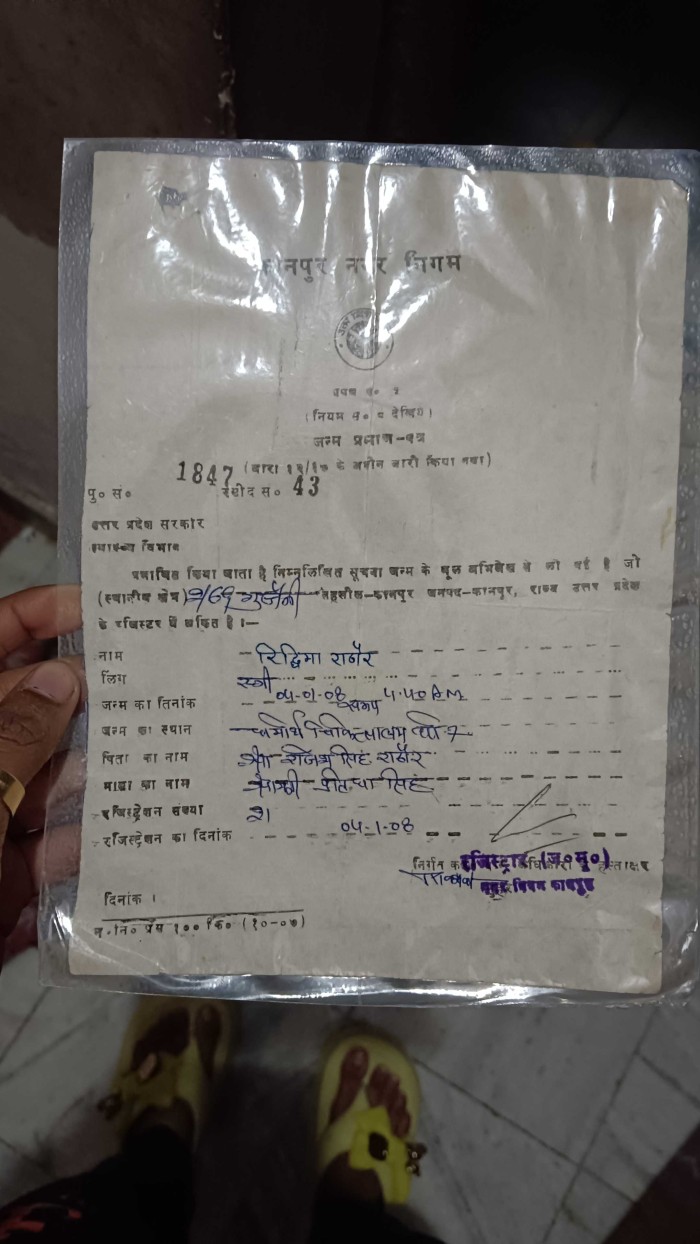 कानपुर नगर निगम
प्रपत्र सं० ५
(नियम सं० ८ देखिए)
जन्म प्रमाण-पत्र
(धारा १२/१७ के अधीन जारी किया गया)
पु० सं० 1847 रसीद सं० 43
उत्तर प्रदेश सरकार
स्वास्थ्य विभाग
प्रमाणित किया जाता है निम्नलिखित सूचना जन्म के मूल अभिलेख से ली गई है जो
(स्थानीय क्षेत्र) तहसील-कानपुर जनपद-कानपुर, राज्य उत्तर प्रदेश
के रजिस्टर में अंकित है।—
नाम रिद्धिमा राठौर
लिंग स्त्री
जन्म का दिनांक 04-01-08 समय 4.40 P.M
जन्म का स्थान
पिता का नाम सिंह राठौर
माता का नाम सिंह
रजिस्ट्रेशन संख्या
रजिस्ट्रेशन का दिनांक 04-1-08
रजिस्ट्रार (ज०मृ०)
हस्ताक्षर
नगर निगम कानपुर
दिनांक ।
न.नि० प्रेस १०० कि० (१०-०७)